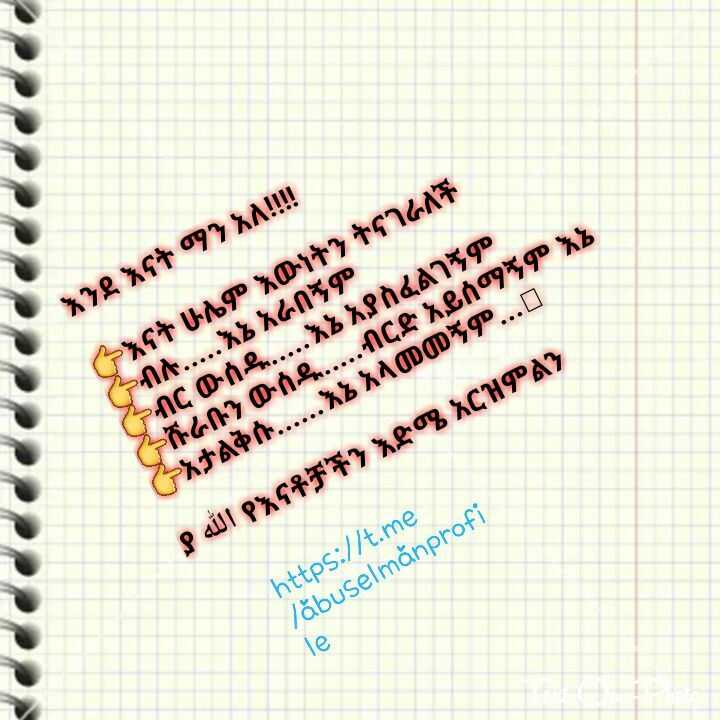 እንደ እናት ማን አለ!!!!
👉እናት ሁሌም እውነትን ትናገራለች
👉ብሉ.....እኔ አራበኝም
👉ብር ውሰዱ......እኔ አያስፈልገኝም
👉ሹራቡን ውሰዱ......ብርድ አይሰማኝም እኔ
👉አታልቅሱ......እኔ አላመመኝም...
ያ ﷲ የእናቶቻችን እድሜ አርዝምልን
https://t.me
/åbuselmånprofi
le